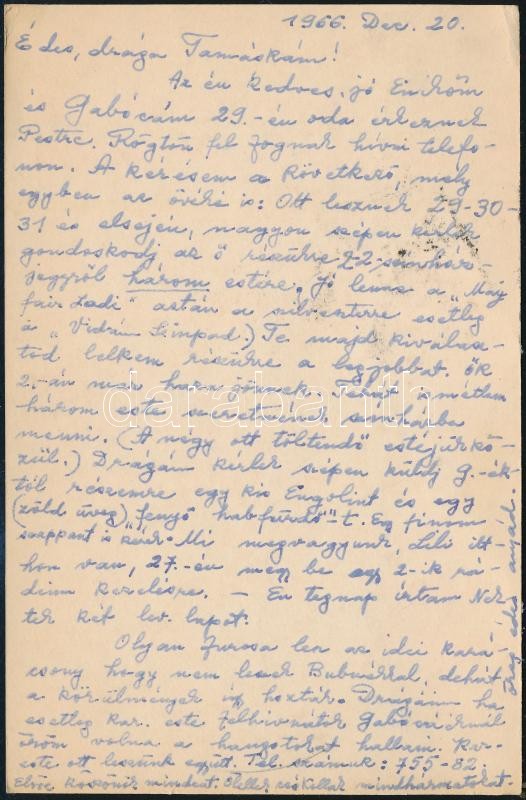 1966. Dec. 20.
Édes, drága Tamáskám!
Az én kedves, jó Enikőm
és Gabócám 29.-én oda érkeznek
Pestre. Rögtön fel fognak hívni telefo-
non. A kérésem a következő, mely
egyben az övéké is: Ott lesznek 29-30-
31 és elsején, nagyon szépen kérlek
gondoskodj az ő részükre 2-2 színház-
jegyről három estére. Jó lenne a "Máy
fair Ladi" aztán a szilveszterre esetleg
a "Vidám Színpad.) Te majd kiválasz-
tod lelkem részükre a legjobbat. Ők
2.-án már haza jönnek. Tehát ismétlem
három este szeretnének színházba
menni. (A négy ott töltendő estéjük kö-
zül.) Drágám kérlek szépen küldj G.-ék-
től részemre egy kis Engolint és egy
(zöld üveg) "fenyő habfürdő"-t. Egy finom
szappant is kérek. Mi megvagyunk, Lili itt-
hon van, 27.-én megy be a 2-ik rá-
dium kezelésre. — Én tegnap írtam Nek-
tek két lev. lapot.
Olyan furcsa lesz az idei kará-
csony hogy nem leszek Bubuékkal, dehát
a körülmények így hozták. Drágám ha
esetleg Kar. este felhívnátok Gabócáéknál
öröm volna a hangotokat hallani. Kar.
este ott leszünk együtt. Tel. számuk: 755-82.
Előre köszönök mindent. Ölellek csókollak mindhármatokat.
öreg édes anyád.
darabanth